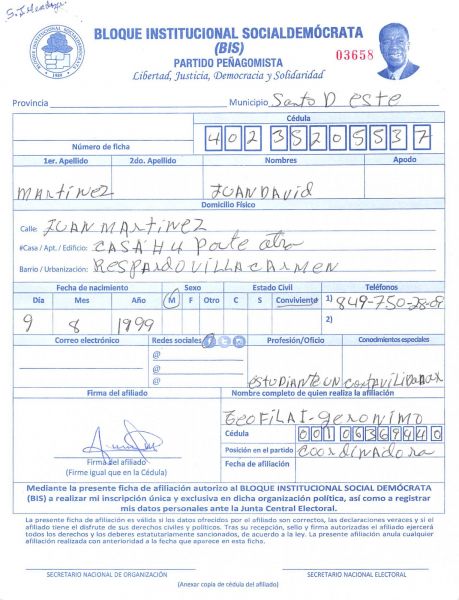 S.I Mendoza
BLOQUE INSTITUCIONAL SOCIALDEMÓCRATA
(BIS)
PARTIDO PEÑAGOMISTA
Libertad, Justicia, Democracia y Solidaridad
03658
Provincia Municipio Santo D este
Cédula
Número de ficha 40235205537
1er. Apellido 2do. Apellido Nombres Apodo
Martínez JUAN DAVID
Domicilio Físico
Calle: JUAN MARTINEZ
#Casa / Apt. / Edificio: CASA H4 Parte atra
Barrio / Urbanización: RESPARDO VILLA CARMEN
Fecha de nacimiento Sexo Estado Civil Teléfonos
Día Mes Año M F Otro C S Conviviente 1) 849-750-2808
9 8 1999 2)
Correo electrónico Redes sociales Profesión/Oficio Conocimientos especiales
@
@
@
estudiante un
Firma del afiliado Nombre completo de quien realiza la afiliación
Geronimo
Cédula 00106369440
Posición en el partido Coordinadora
Firma del afiliado
(Firme igual que en la Cédula)
Fecha de afiliación
Mediante la presente ficha de afiliación autorizo al BLOQUE INSTITUCIONAL SOCIAL DEMÓCRATA
(BIS) a realizar mi inscripción única y exclusiva en dicha organización política, así como a registrar
mis datos personales ante la Junta Central Electoral.
La presente ficha de afiliación es válida si los datos ofrecidos por el afiliado son correctos, las declaraciones veraces y si el
afiliado tiene el disfrute de sus derechos civiles y políticos. Tras su recepción, sello y firma autorizados el afiliado ejercerá
todos los derechos y los deberes estatutariamente sancionados, de acuerdo a la ley. La presente afiliación anula cualquier
afiliación realizada con anterioridad a la fecha que aparece en esta ficha.
SECRETARIO NACIONAL DE ORGANIZACIÓN SECRETARIO NACIONAL ELECTORAL
(Anexar copia de cédula del afiliado)